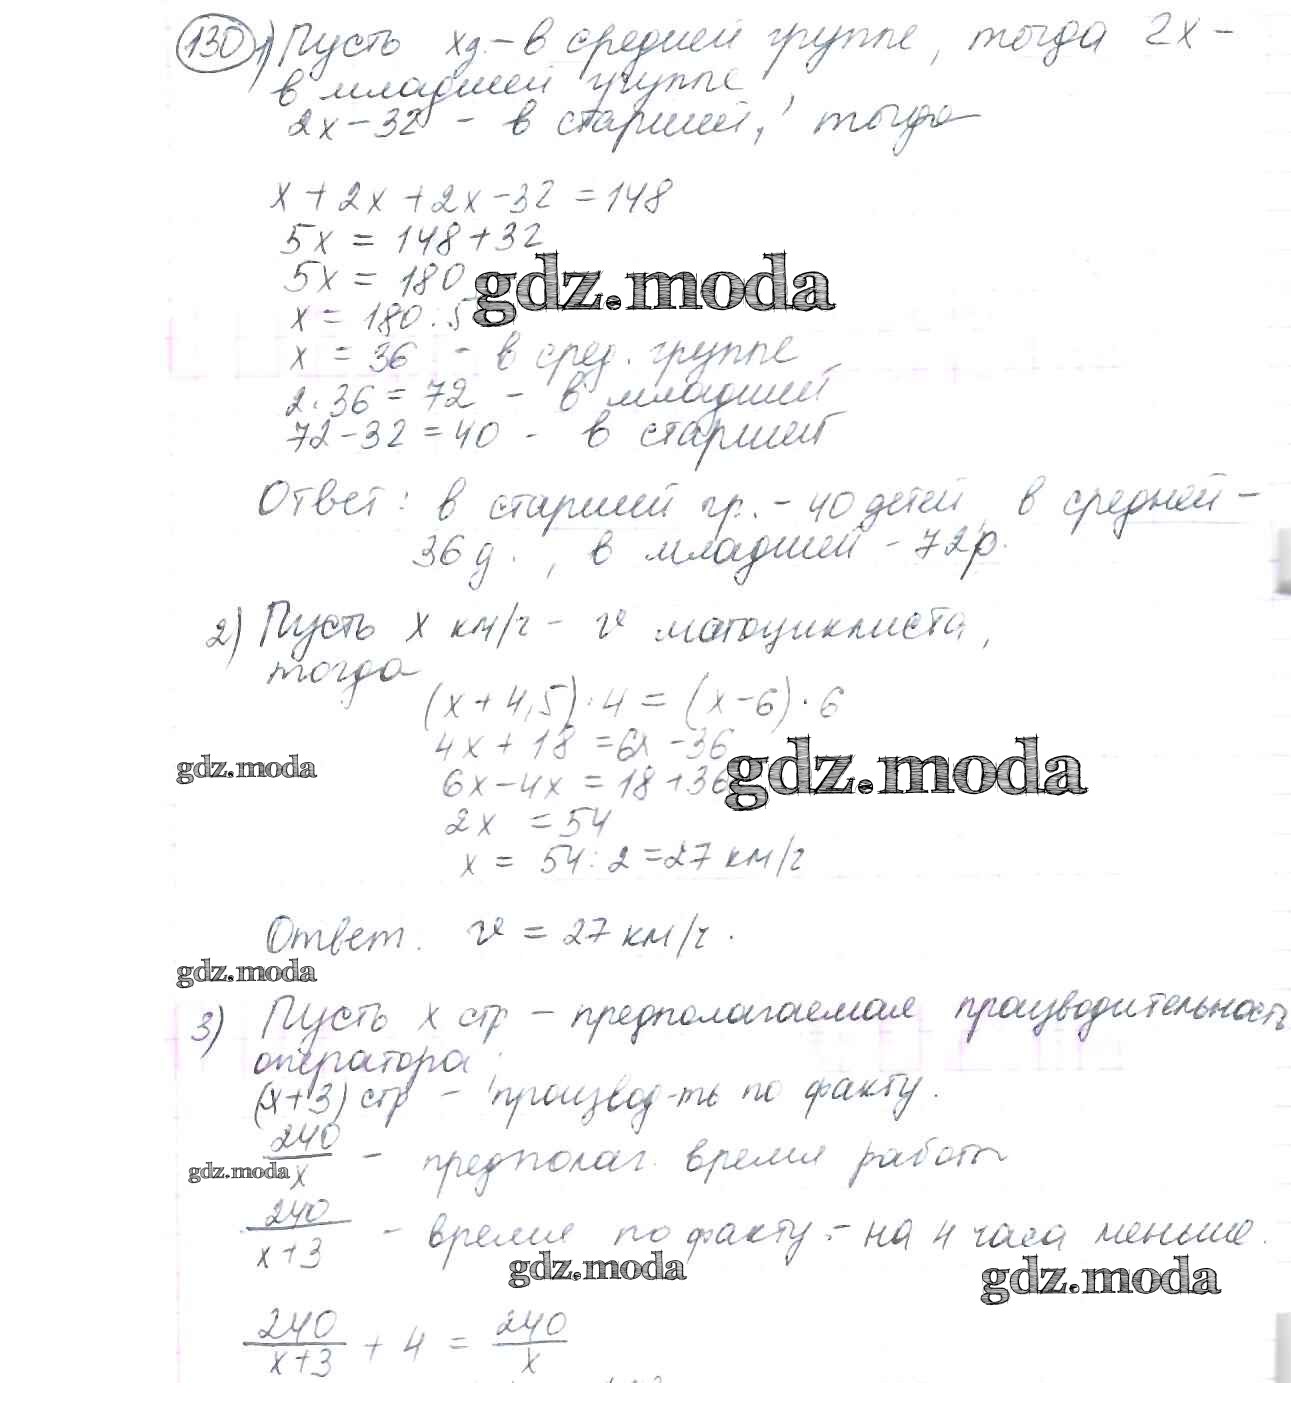 130 1) Пусть х д. – в средней группе, тогда 2х –
в младшей группе,
2х – 32 – в старшей, тогда
х + 2х + 2х – 32 = 148
5х = 148 + 32
5х = 180
gdz.moda
х = 180 : 5
х = 36 – в сред. группе
2 · 36 = 72 – в младшей
72 – 32 = 40 – в старшей
Ответ: в старшей гр. – 40 детей, в средней –
36 д., в младшей – 72 р.
2) Пусть х км/ч – v мотоциклиста,
тогда
(х + 4,5) · 4 = (х – 6) · 6
4х + 18 = 6х – 36
gdz.moda
gdz.moda
6х – 4х = 18 + 36
2х = 54
х = 54 : 2 = 27 км/ч
Ответ. v = 27 км/ч.
gdz.moda
3) Пусть х стр – предполагаемая производительность
оператора.
(х + 3) стр – производ-ть по факту.
240/х – предполаг. время работы
gdz.moda
240/(х + 3) – время по факту – на 4 часа меньше.
gdz.moda
gdz.moda
240/(х + 3) + 4 = 240/х